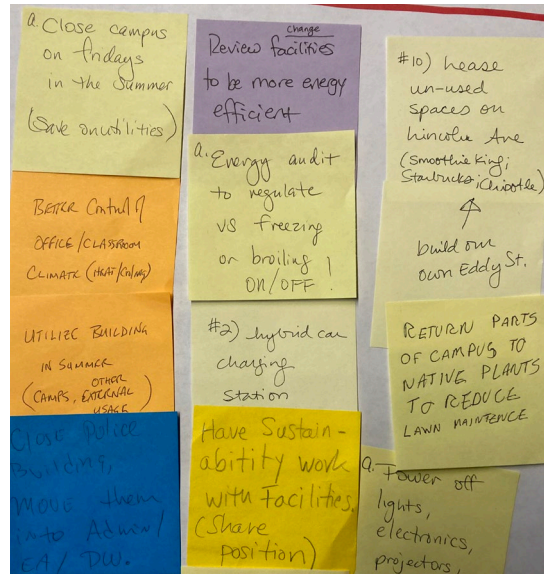 a. Close campus
on fridays
in the Summer
(Save on utilities)
Better Control of
Office/Classroom
Climate (Heat/Cooling)
Utilize Building
in Summer
(Camps, Other External
Usage)
Close Police
Building,
Move them
into Admin/
EA/DW.
change
Review facilities
to be more energy
efficient
a. Energy audit
to regulate
vs freezing
or broiling
ON/OFF!
#2) hybrid car
charging
station
Have Sustain-
ability work
with Facilities.
(Share
position)
#10) Lease
un-used
spaces on
Lincoln Ave
(Smoothie King;
Starbucks; Chipotle)
build our
own Eddy St.
Return Parts
of Campus to
Native Plants
to Reduce
Lawn Maintence
a. Power off
lights,
electronics,
projectors,